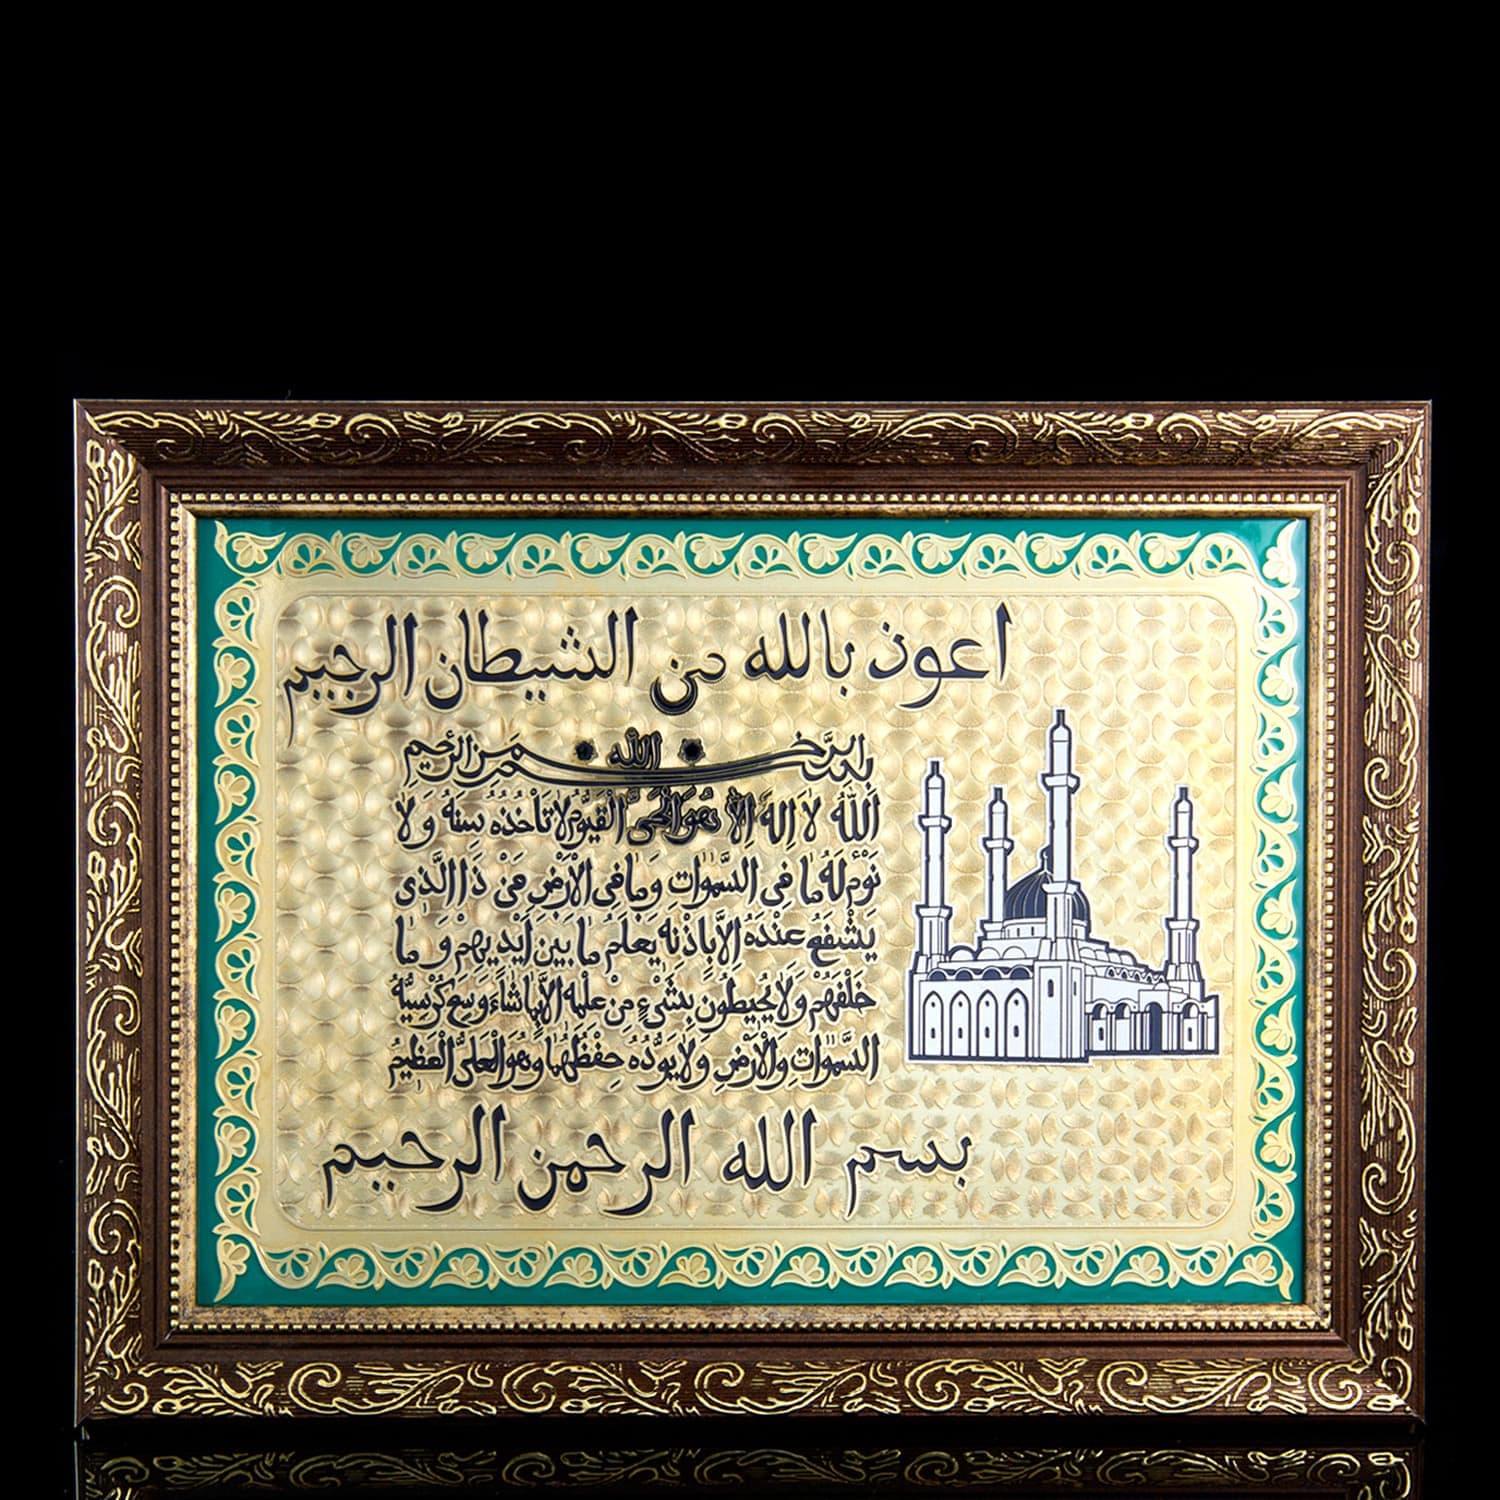 اعوذ بالله من الشيطان الرجيم
بسم الله الرحمن الرحيم
الله لا اله الا هو الحي القيوم لا تأخذه سنه ولا
نوم له ما في السموات وما في الارض من ذا الذي
يشفع عنده الا باذنه يعلم ما بين ايديهم وما
خلفهم ولا يحيطون بشيء من علمه الا بما شاء وسع كرسيه
السموات والارض ولا يوده حفظهما وهو العلي العظيم
بسم الله الرحمن الرحيم